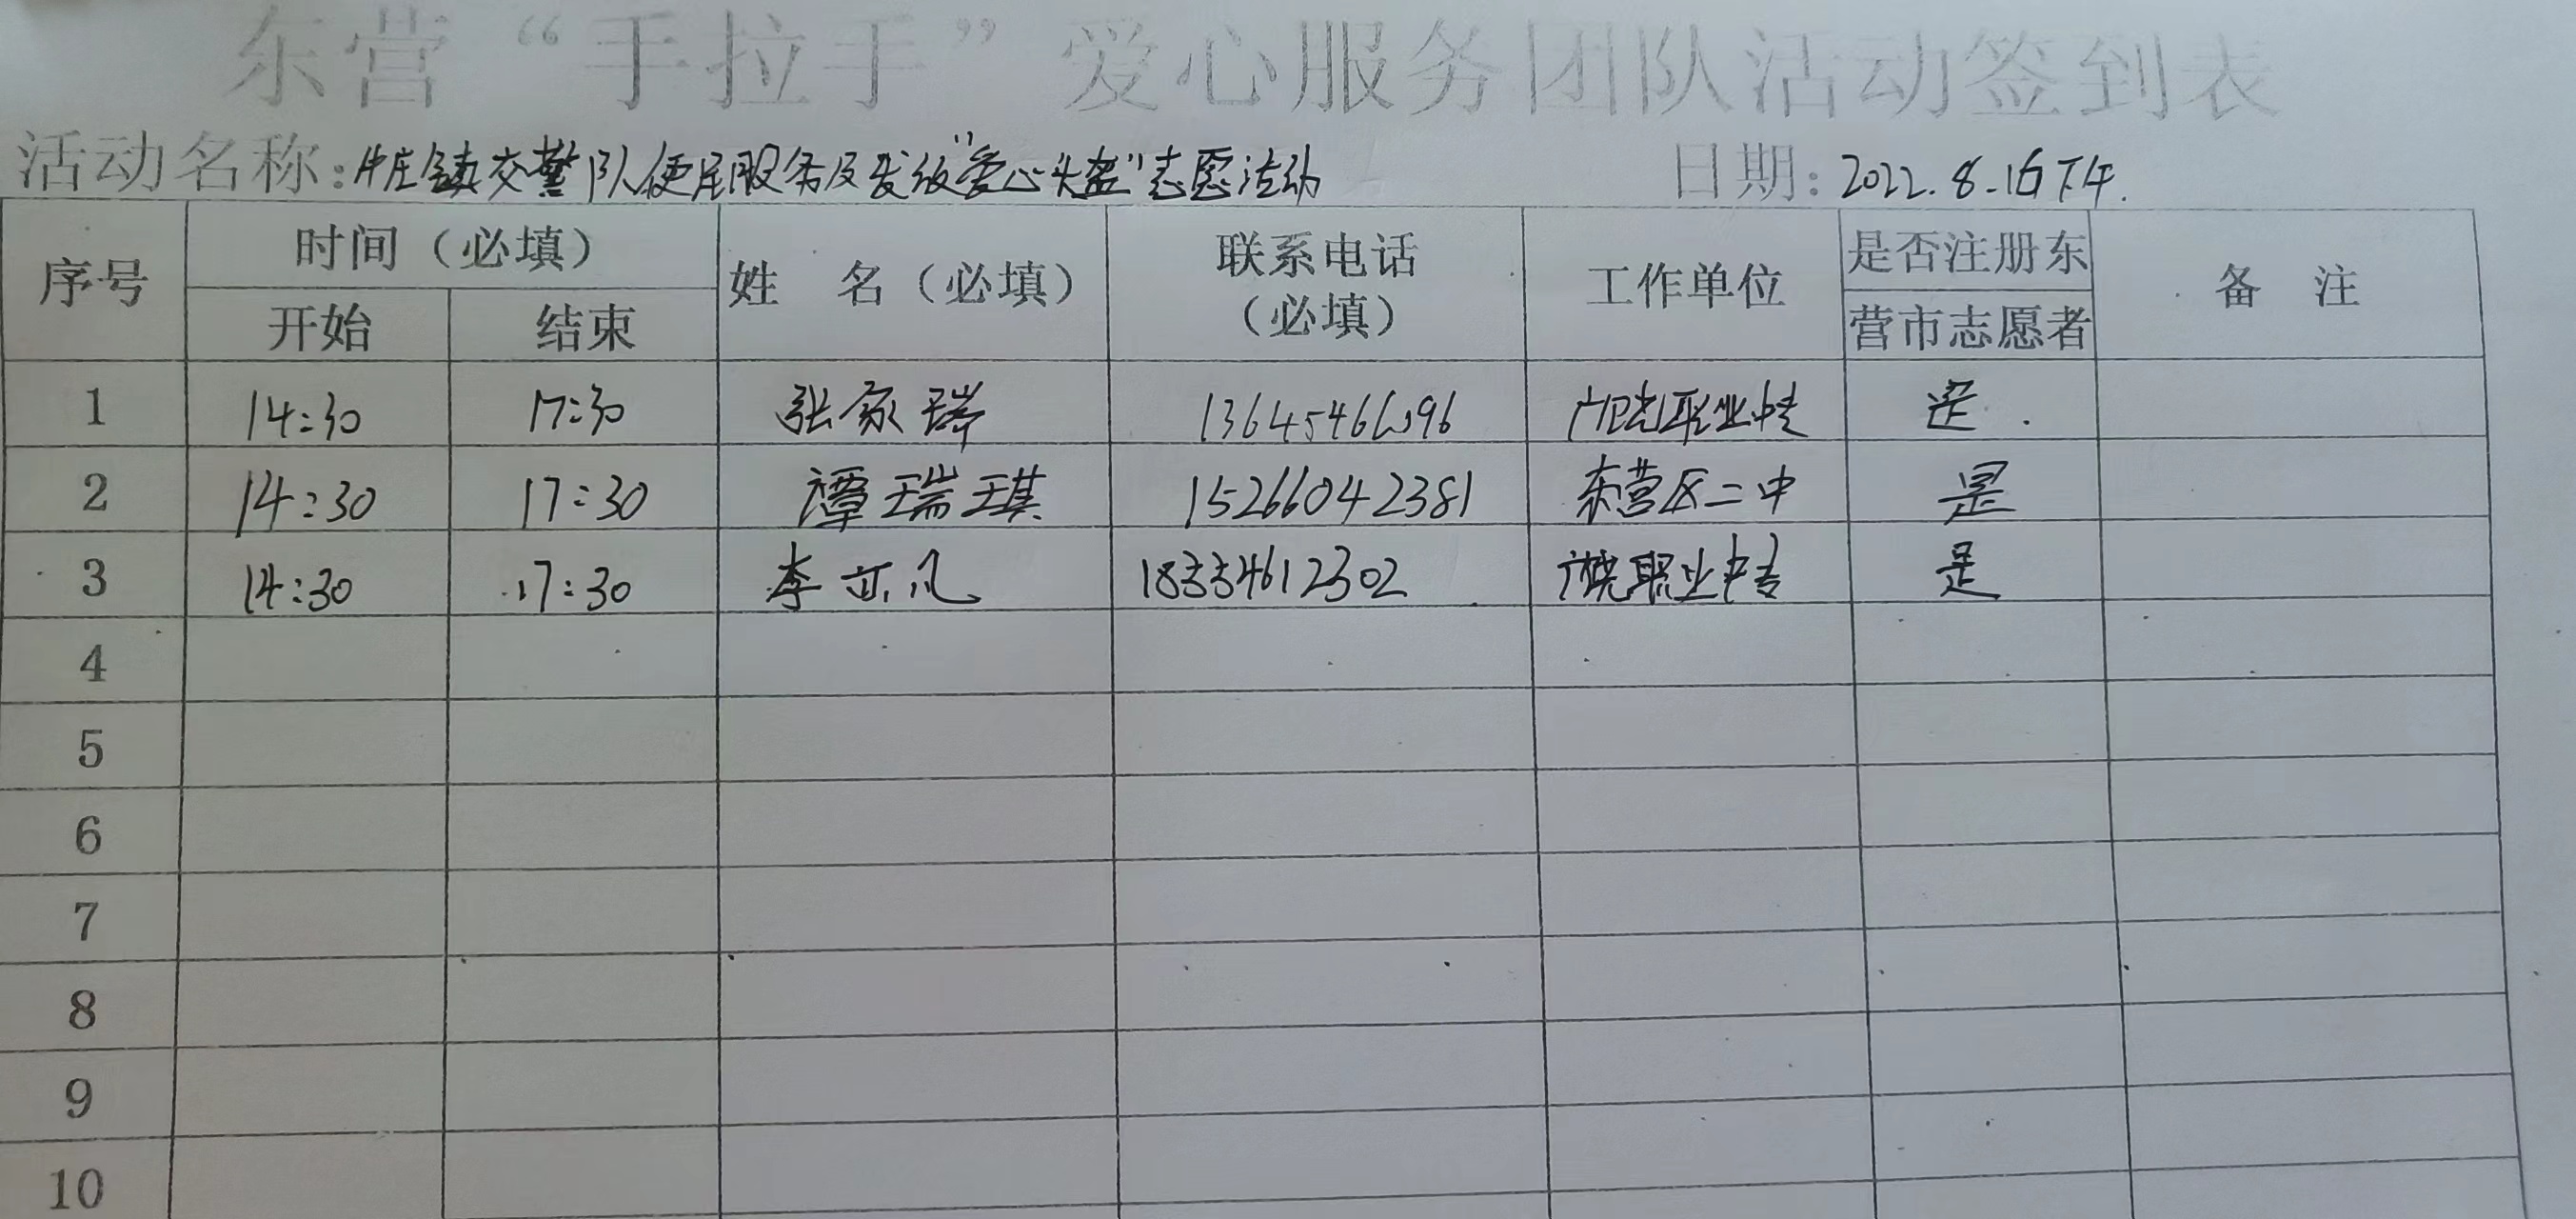 东营“手拉手”爱心服务团队活动签到表
活动名称:牛庄镇交警队便民服务及发放“爱心头盔”志愿活动 日期:2022.8.16下午.
序号 时间（必填） 姓 名（必填） 联系电话（必填） 工作单位 是否注册东营市志愿者 备 注
开始 结束
1 14:30 17:30 张家瑞 职业中专 是
2 14:30 17:30 谭瑞琪 15266042381 东营区二中 是
3 14:30 17:30 李亦凡 18334612302 职业中专 是
4
5
6
7
8
9
10